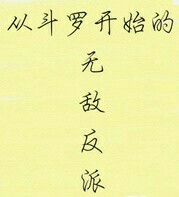 从斗罗开始的
无
敌
反
派